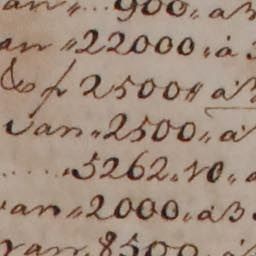 an „ . . 900 „ a 3
an „ 22000 „ à 3
& f 2500 „ à 3
van „ 2500 „ à
. . . . . „ 5262 „ 10 „ a
van „ 2000 „ a 3
van „ 8500 „ à